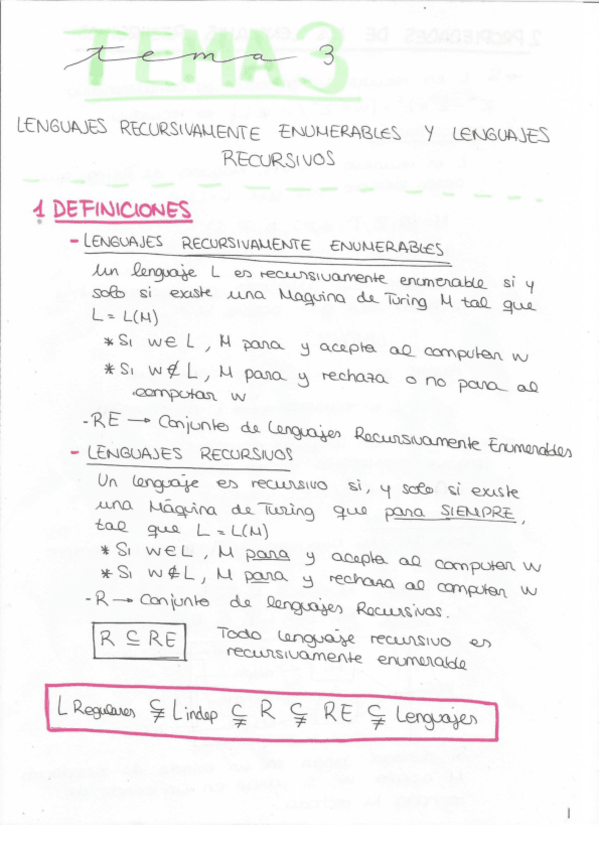 TEMA 3
tema 3
LENGUAJES RECURSIVAMENTE ENUMERABLES Y LENGUAJES
RECURSIVOS
1 DEFINICIONES
- LENGUAJES RECURSIVAMENTE ENUMERABLES
Un lenguaje L es recursivamente enumerable si y
solo si existe una Maquina de Turing M tal que
L = L(M)
* Si w ∈ L, M para y acepta al computar w
* Si w ∉ L, M para y rechaza o no para al
computar w
- RE → Conjunto de Lenguajes Recursivamente Enumerables
- LENGUAJES RECURSIVOS
Un lenguaje es recursivo si, y solo si existe
una Máquina de Turing que para SIEMPRE,
tal que L = L(M)
* Si w ∈ L, M para y acepta al computar w
* Si w ∉ L, M para y rechaza al computar w
- R → Conjunto de lenguajes Recursivos.
R ⊆ RE Todo lenguaje recursivo es
recursivamente enumerable
L Regulares ⊊ L indep ⊊ R ⊊ RE ⊊ Lenguajes
1